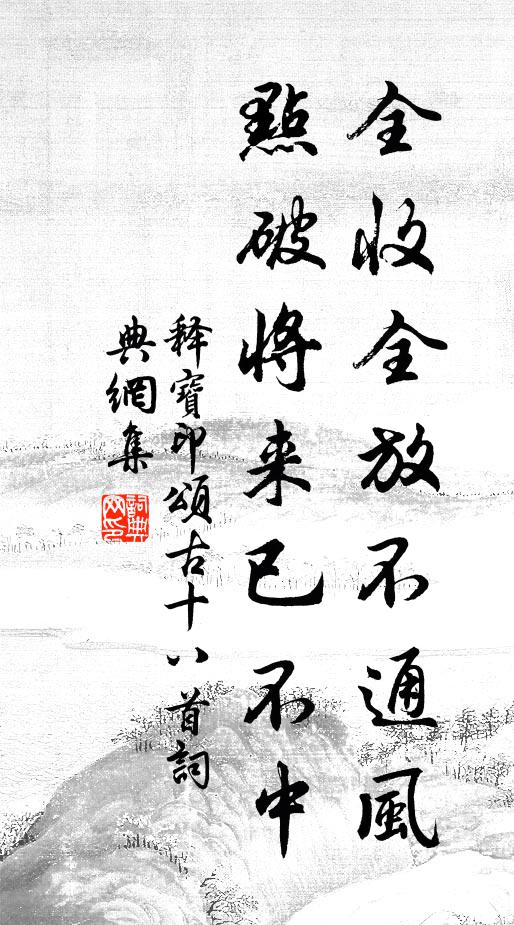 全收全放不通風
點破將来已不中
释寶印頌古十八首詞
典網集
詞典
网